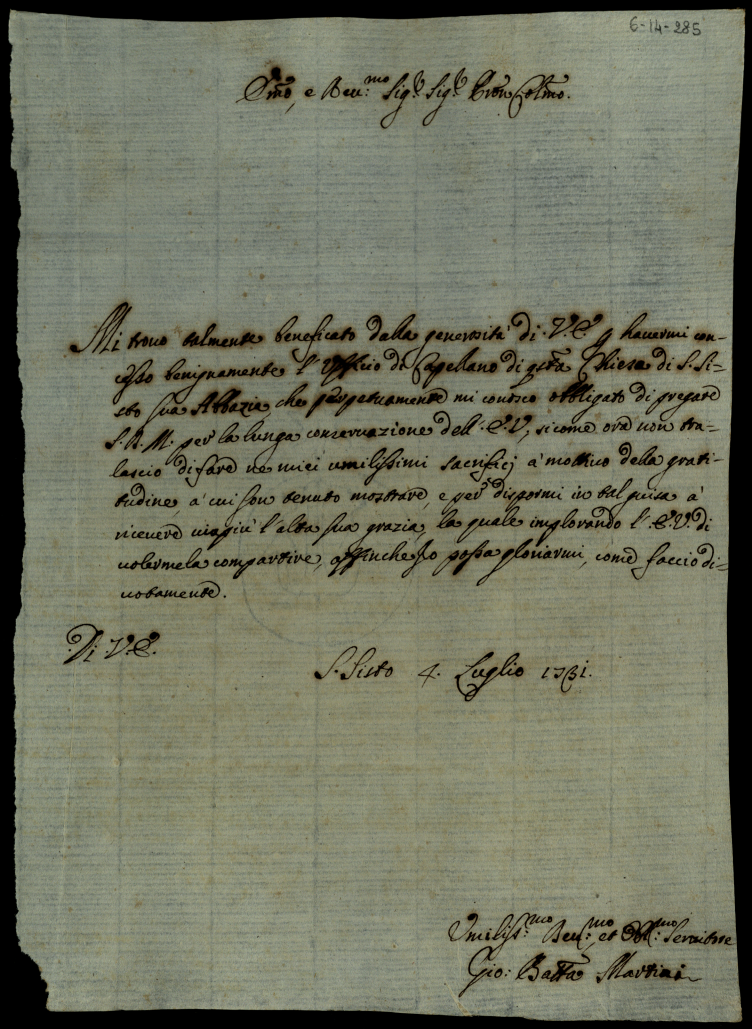 6-14-285
Emo, e Reu:mo Sigr. Sigr. Pron Colmo.
Mi trouo talmente beneficato dalla generosità di V.E. p hauermi con-
cesso benignamente l'Vfficio di Capellano di qsta Chiesa di S. Si-
sto sua Abbazia, che perpetuamente mi conosco obbligato di pregare
S.D.M. per la lunga conseruazione dell'E.V., sicome ora non tra-
lascio di fare ne miei umilissimi sacrifici à mottiuo della grati-
tudine, à cui son tenuto mostrare, e per dispormi in tal guisa à
riceuere uiepiù l'alta sua grazia, la quale implorando l'E.V. di
uolermela compartire, affinche Io possa gloriarmi, come faccio di-
uotamente.
Di V.E.
S. Sisto 4. Luglio 1731.
Vmiliss:mo Reu:mo, et Obb:mo Seruitore
Gio: Batta Martini